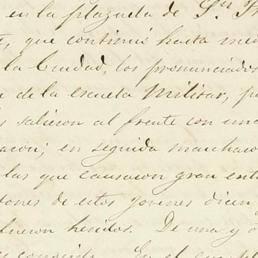 en la plazuela de Sn
que continuó hasta me
la Ciudad, los pronunciados
de la escuela Militar, p
salieron al frente con un
en seguida marcharo
las que causaron gran en
de estos jovenes dicen
fueron heridos. De una y o